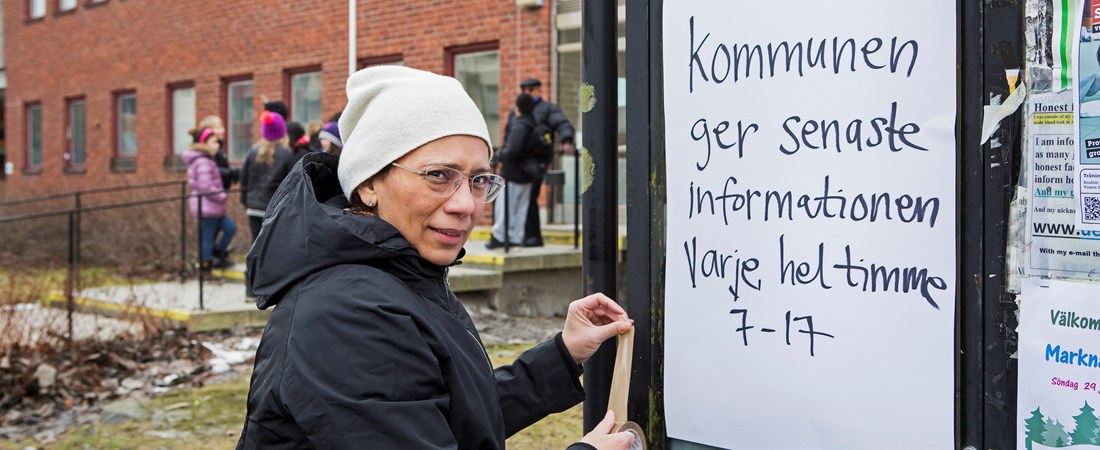 Kommunen
ger senaste
informationen
varje hel timme
7-17
Honest F
I am info
as many
honest fa
inform he
And my t
And my nickna
www.de
With my e-mail
Välkom
Markna
Söndag 29